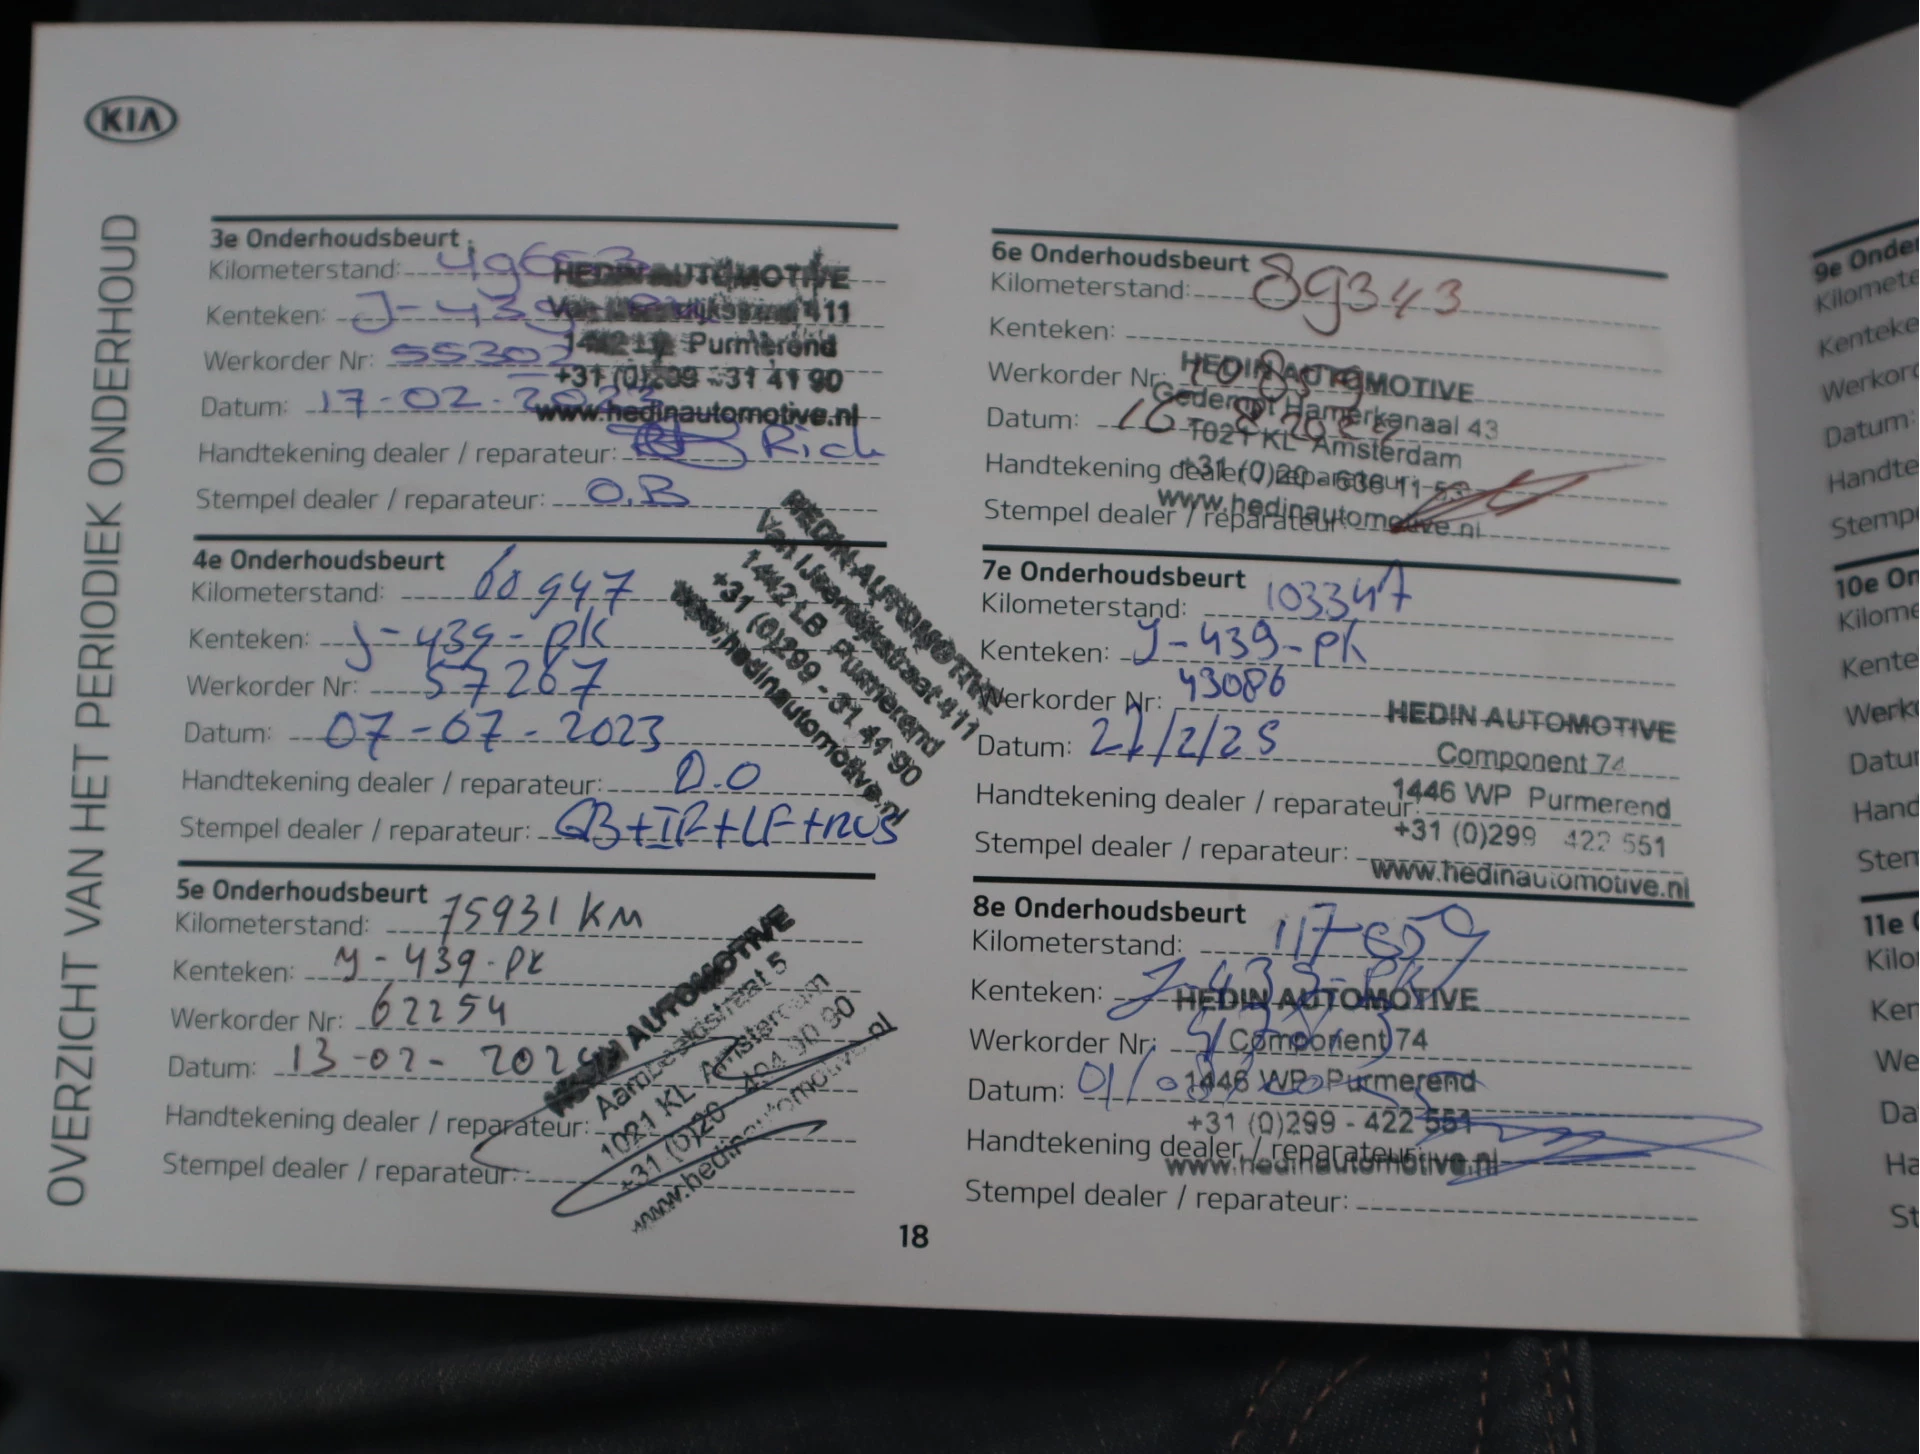 KIA
OVERZICHT VAN HET PERIODIEK ONDERHOUD
3e Onderhoudsbeurt
Kilometerstand:
Kenteken: J-439
Werkorder Nr: 55302
Datum: 17-02-2023
Handtekening dealer / reparateur: Rich
Stempel dealer / reparateur: O.B
HEDIN AUTOMOTIVE
411
Purmerend
+31 (0)299 - 31 41 90
www.hedinautomotive.nl
4e Onderhoudsbeurt
Kilometerstand: 60947
Kenteken: J-439-PK
Werkorder Nr: 57267
Datum: 07-07-2023
Handtekening dealer / reparateur: D.O
Stempel dealer / reparateur:
HEDIN AUTOMOTIVE
Van IJsendijkstraat 411
1442 LB Purmerend
+31 (0)299 - 31 41 90
www.hedinautomotive.nl
5e Onderhoudsbeurt
Kilometerstand: 75931 KM
Kenteken: J-439-PK
Werkorder Nr: 62254
Datum: 13-02-202
Handtekening dealer / reparateur:
Stempel dealer / reparateur:
HEDIN AUTOMOTIVE
5
1021 KL Amsterdam
+31 (0)20 - 494 90 90
www.hedinautomotive.nl
6e Onderhoudsbeurt
Kilometerstand: 89343
Kenteken:
Werkorder Nr:
Datum: 16
Handtekening dealer / reparateur:
Stempel dealer / reparateur:
HEDIN AUTOMOTIVE
Gedempt Hamerkanaal 43
1021 KL Amsterdam
+31 (0)20 - 636 11
www.hedinautomotive.nl
7e Onderhoudsbeurt
Kilometerstand: 103347
Kenteken: J-439-PK
Werkorder Nr: 43086
Datum: 27/2/25
Handtekening dealer / reparateur:
Stempel dealer / reparateur:
HEDIN AUTOMOTIVE
Component 74
1446 WP Purmerend
+31 (0)299 422 551
www.hedinautomotive.nl
8e Onderhoudsbeurt
Kilometerstand:
Kenteken: J-439-PK
Werkorder Nr:
Datum:
Handtekening dealer / reparateur:
Stempel dealer / reparateur:
HEDIN AUTOMOTIVE
Component 74
1446 WP Purmerend
+31 (0)299 - 422 551
www.hedinautomotive.nl
18
9e Onder
Kilomete
Kenteke
Werkord
Datum:
Handte
Stemp
10e On
Kilome
Kente
Werk
Datu
Hand
Sten
11e
Kilo
Ken
We
Da
Ha
St